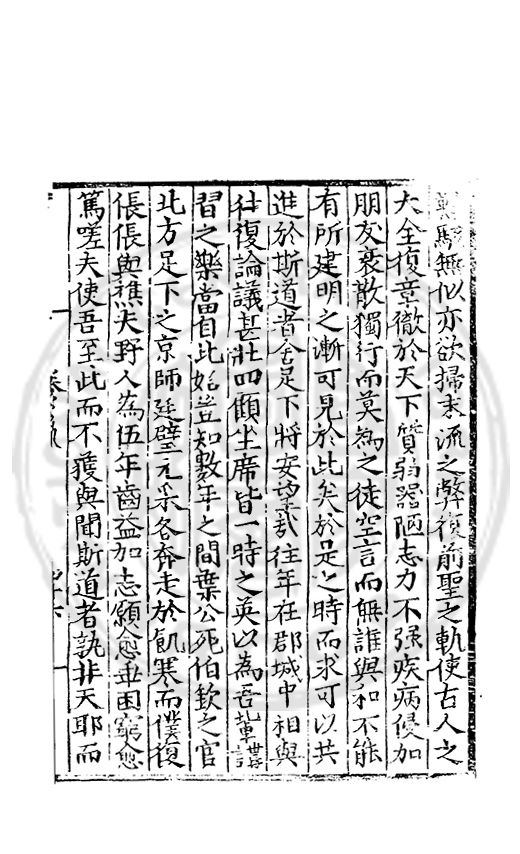 駑無似亦欲掃末流之弊復前聖之軌使古人之
大全復章徹於天下質弱器陋志力不强疾病侵加
朋友衰散獨行而莫為之徒空言而無誰與和不能
有所建明之漸可見於此矣於是之時而求可以共
進於斯道者舍足下將安望哉往年在郡城中相與
往復論議甚壯四顧坐席皆一時之英以為吾輩講
習之樂當自此始豈知數年之間葉公死伯欽之官
北方足下之京師廷璧元采各奔走於飢寒而僕復
倀倀與樵夫野人為伍年齒益加志願愈乖困窮愈
篤嗟夫使吾至此而不獲與聞斯道者孰非天耶而